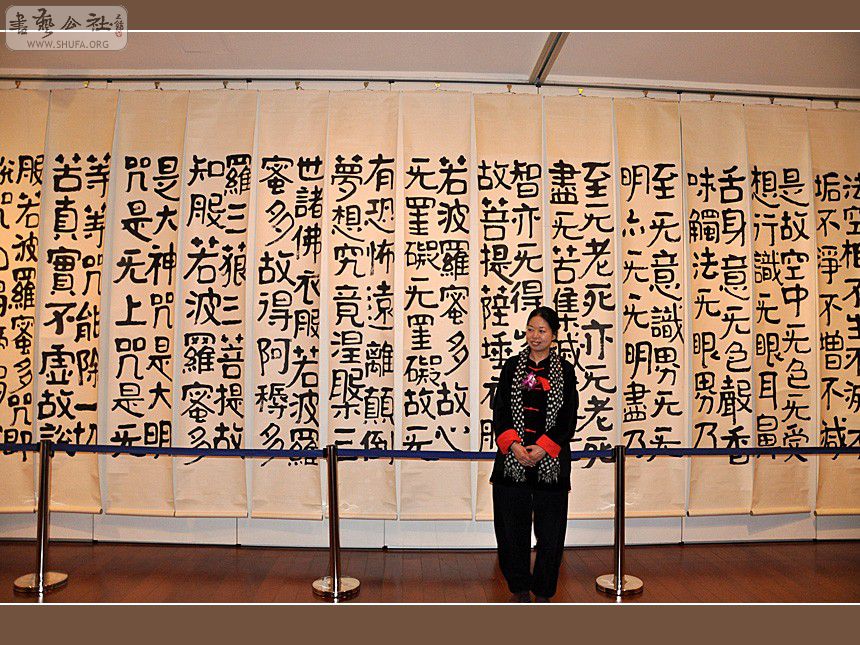 書藝公社
WWW.SHUFA.ORG
法空相不生不滅不
垢不淨不增不減
是故空中无色无受
想行識无眼耳鼻
舌身意无色聲香
味觸法无眼界乃
至无意識界无无
明亦无无明盡乃
至无老死亦无老死
盡无苦集滅
智亦无得
故菩提薩埵依般
若波羅蜜多故心
无罣礙无罣礙故无
有恐怖遠離顛倒
夢想究竟涅槃三
世諸佛依般若波羅
蜜多故得阿耨多
羅三藐三菩提故
知般若波羅蜜多
是大神咒是大明
咒是无上咒是无
等等咒能除一切
苦真實不虛故說
般若波羅蜜多咒即